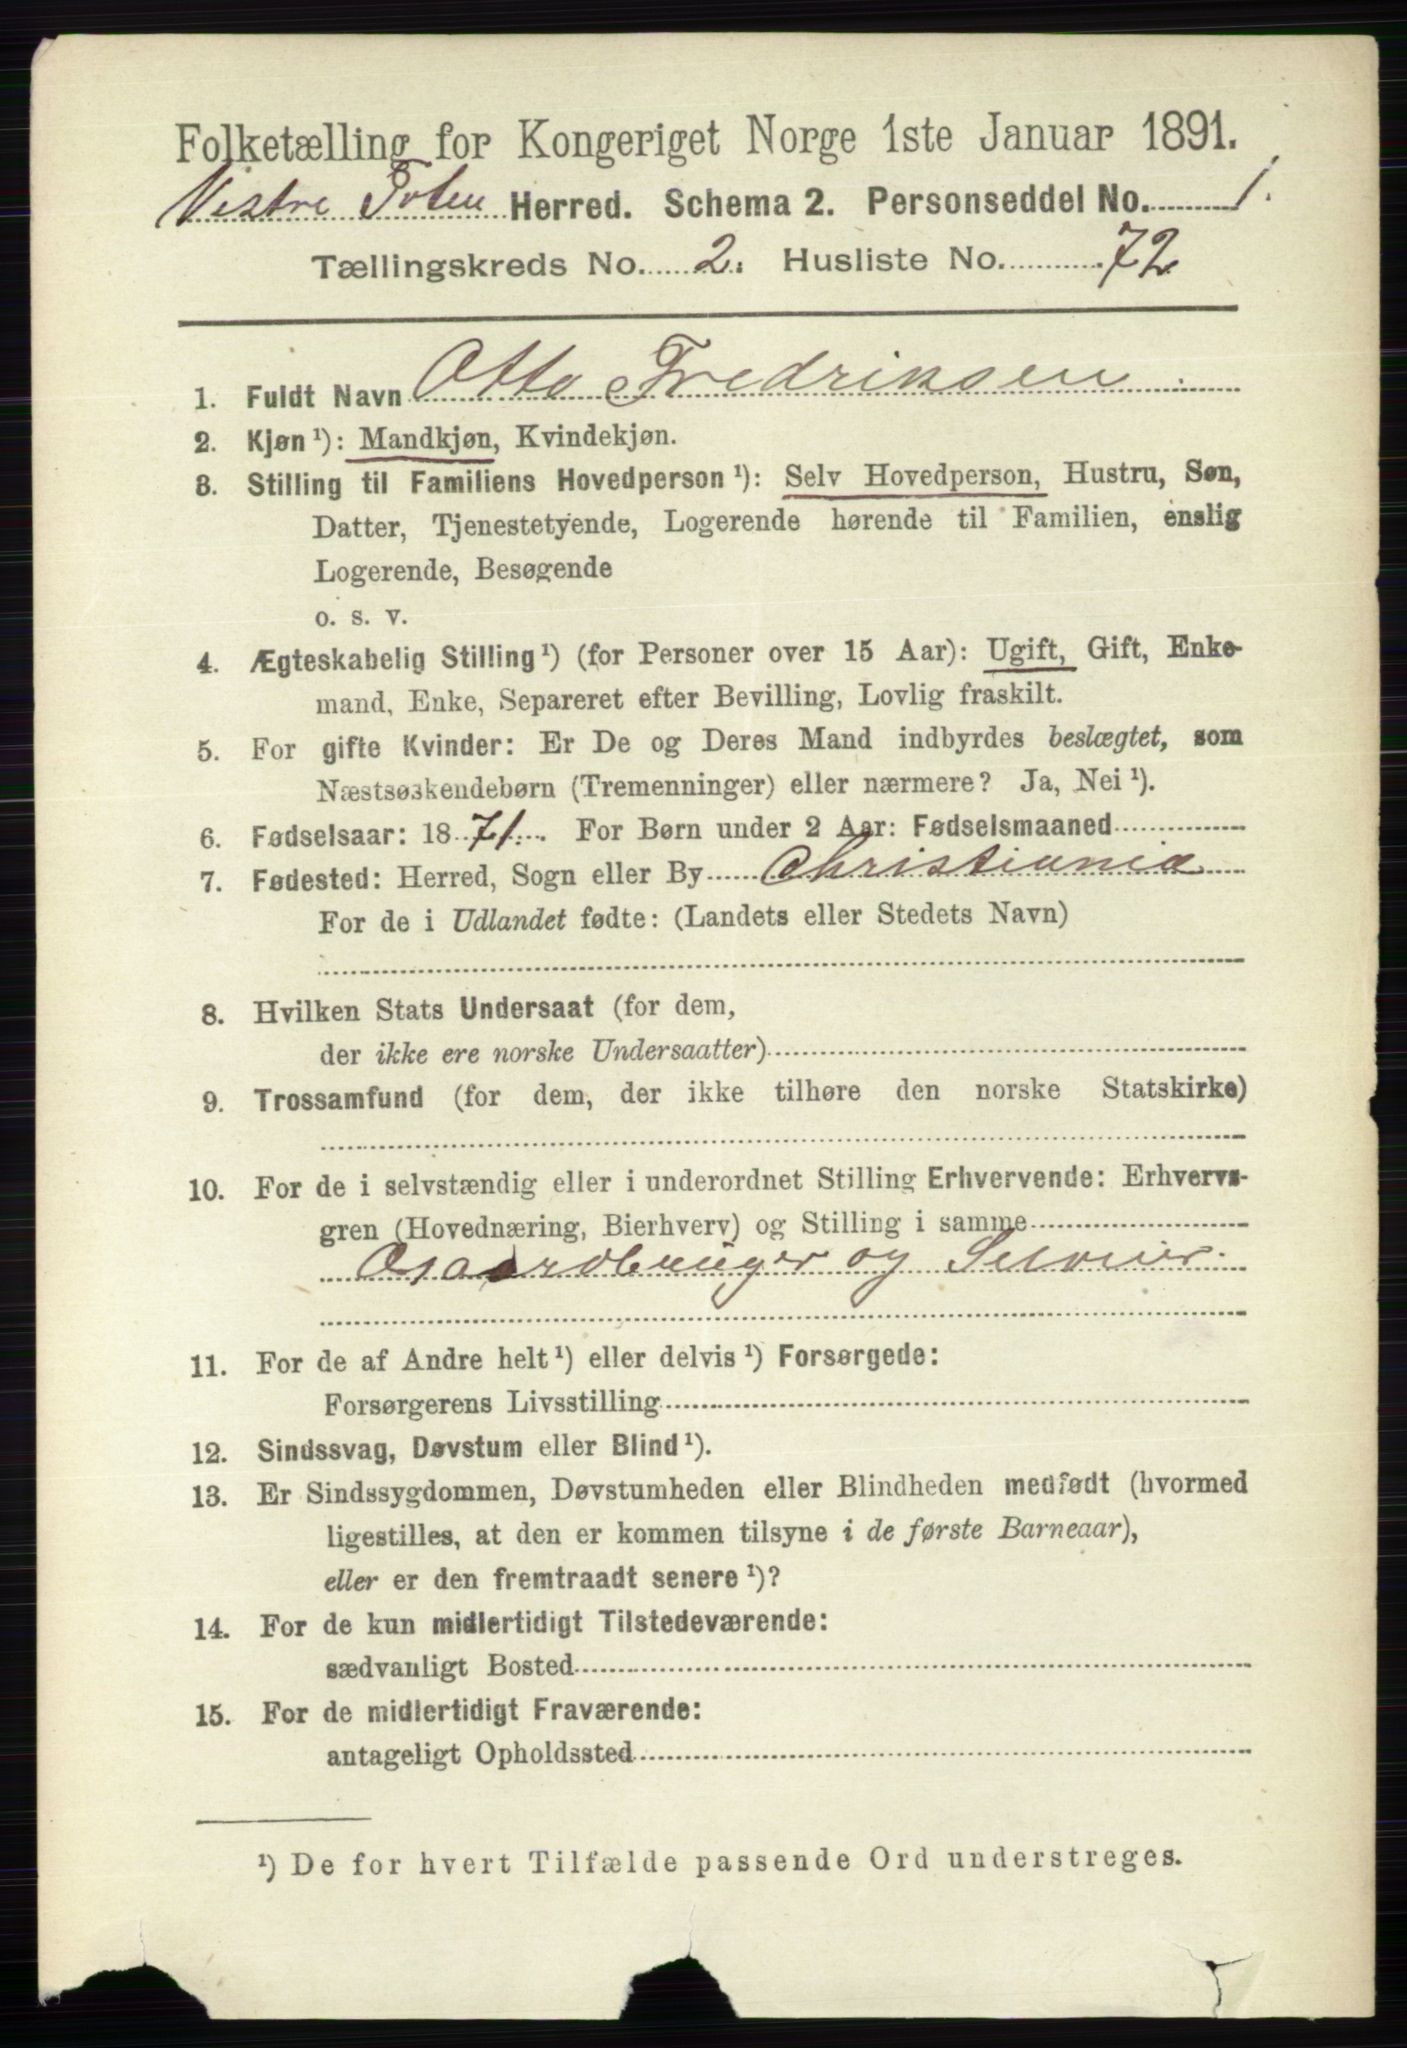 Folketælling for Kongeriget Norge 1ste Januar 1891.
Vestre Toten Herred. Schema 2. Personseddel No. 1.
Tællingskreds No. 2. Husliste No. 72
1. Fuldt Navn Otto Fredriksen
2. Kjøn ¹): Mandkjøn, Kvindekjøn.
3. Stilling til Familiens Hovedperson ¹): Selv Hovedperson, Hustru, Søn,
Datter, Tjenestetyende, Logerende hørende til Familien, enslig
Logerende, Besøgende
o. s. v.
4. Ægteskabelig Stilling ¹) (for Personer over 15 Aar): Ugift, Gift, Enke-
mand, Enke, Separeret efter Bevilling, Lovlig fraskilt.
5. For gifte Kvinder: Er De og Deres Mand indbyrdes beslægtet, som
Næstsøskendebørn (Tremenninger) eller nærmere? Ja, Nei ¹).
6. Fødselsaar: 1871. For Børn under 2 Aar: Fødselsmaaned
7. Fødested: Herred, Sogn eller By Christiania
For de i Udlandet fødte: (Landets eller Stedets Navn)
8. Hvilken Stats Undersaat (for dem,
der ikke ere norske Undersaatter)
9. Trossamfund (for dem, der ikke tilhøre den norske Statskirke)
10. For de i selvstændig eller i underordnet Stilling Erhvervende: Erhvervs-
gren (Hovednæring, Bierhverv) og Stilling i samme
og
11. For de af Andre helt ¹) eller delvis ¹) Forsørgede:
Forsørgerens Livsstilling
12. Sindssvag, Døvstum eller Blind ¹).
13. Er Sindssygdommen, Døvstumheden eller Blindheden medfødt (hvormed
ligestilles, at den er kommen tilsyne i de første Barneaar),
eller er den fremtraadt senere ¹)?
14. For de kun midlertidigt Tilstedeværende:
sædvanligt Bosted
15. For de midlertidigt Fraværende:
antageligt Opholdssted
¹) De for hvert Tilfælde passende Ord understreges.